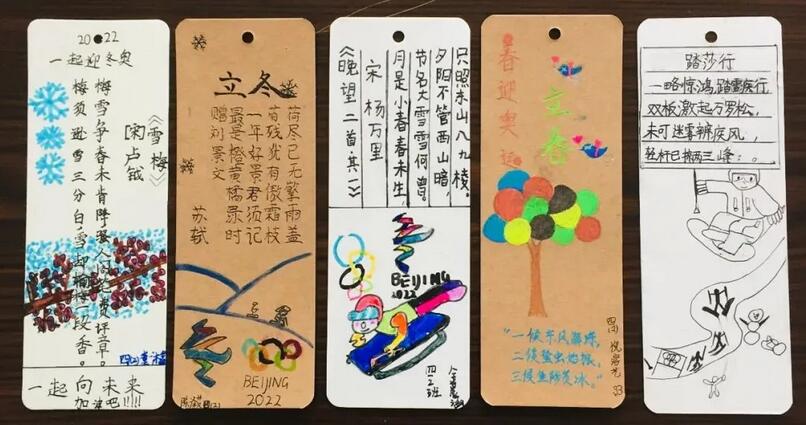 2022
一起迎冬奥
《雪梅》
[宋]卢钺
梅雪争春未肯降，骚人阁笔费评章。
梅须逊雪三分白，雪却输梅一段香。
四(2)
一起向未来
加油吧!!!!
立冬
荷尽已无擎雨盖
菊残犹有傲霜枝
一年好景君须记
最是橙黄橘绿时
赠刘景文
苏轼
BEIJING
2022
只照东山八九棱。
夕阳不管西山暗，
节名大雪雪何曾。
月是小春春未生，
宋 杨万里
《晚望二首其一》
BEIJING
2022
四2班
春迎奥运
立春
“一候东风解冻，
二候蛰虫始振，
三候鱼陟负冰。”
踏莎行
一略惊鸿,踏雪疾行,
双板激起万罗松，
未可迷雾辨疾风，